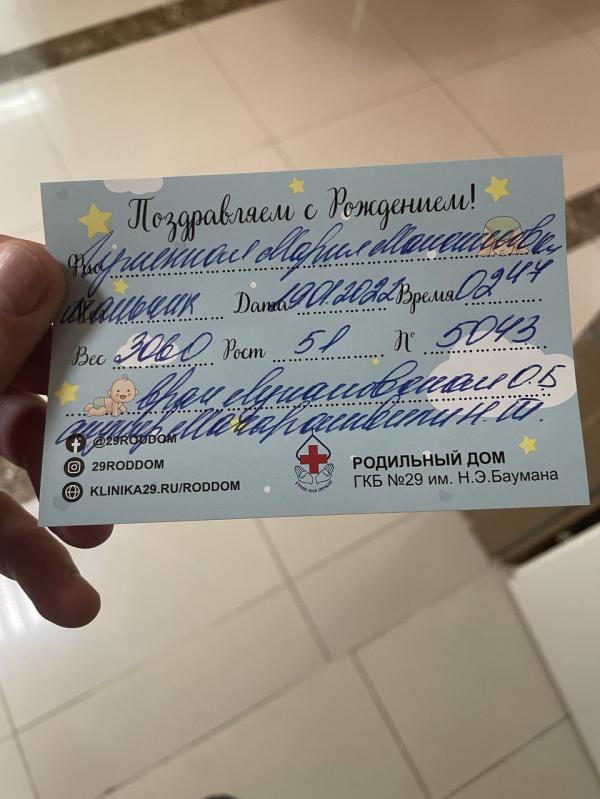 Поздравляем с Рождением!
Фио Мария
мальчик Дата 19.01.2022 Время 02 44
Вес 3060 Рост 51 № 5043
врач О.Б
Н.Т.
@29RODDOM
29RODDOM
KLINIKA29.RU/RODDOM
РОДИЛЬНЫЙ ДОМ
ГКБ №29 им. Н.Э.Баумана